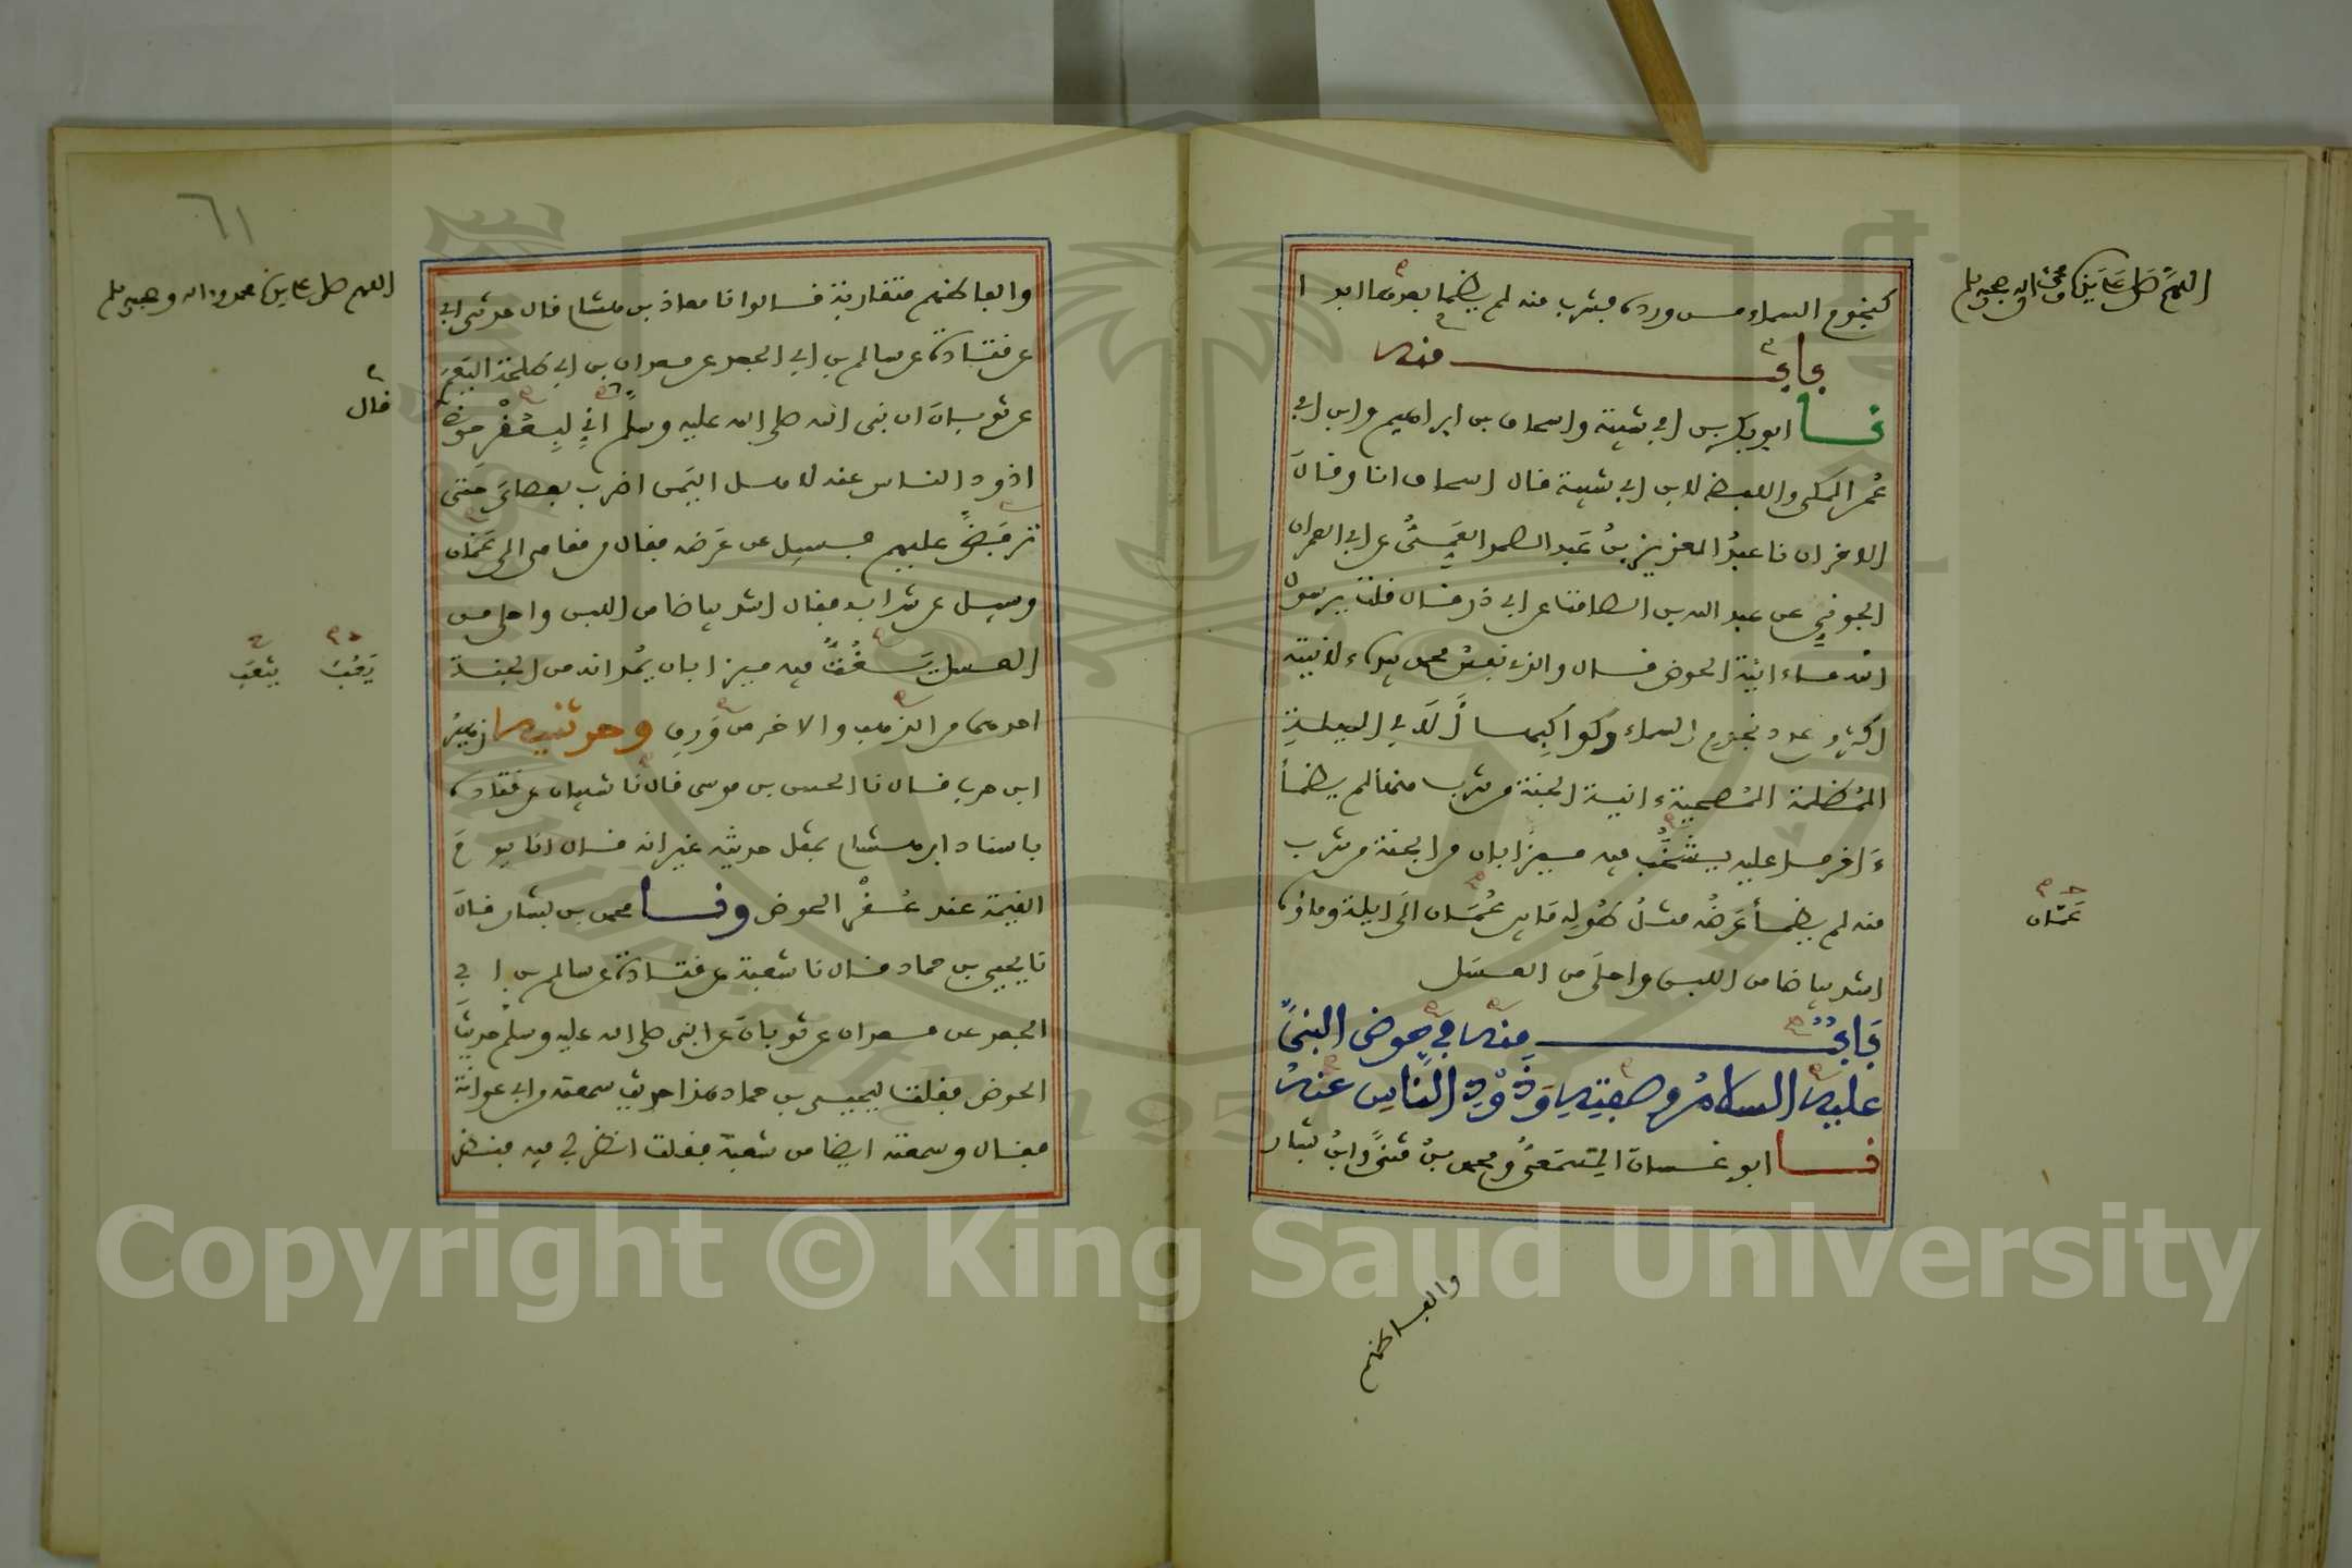 اللهم صل على سيدنا محمد واله وصحبه وسلم
كنجوم السماء من ورده فشرب منه لم يظما بعدها ابدا
باب منه
نا ابو بكر بن ابي شيبة واسحاق بن ابراهيم وابن ابي
عُمر المكي واللفظ لابن ابي شيبة قال اسحاق انا وقال
الاخران نا عبدُ العزيز بنُ عَبد الصمد العَمِّىُّ عن ابي عمران
الجوني عن عبد الله بن الصامت عن ابي ذر قال قلت يرسول
الله ما ءانية الحوض قال والذي نفسُ محمد بيده ءلانيته
اكثر من عدد نجوم السماء وكواكبها ألا في الليلةِ
المُظلمة المُصحية ءانية الجنة من شرب منها لم يظمأ
ءَاخر ما عليه يشخُبُ فيه ميزابان من الجنة من شرب
منه لم يظمأ عَرضُه مثلُ طُولِه مَا بين عُمَان الَى ايلة وماؤه
عَمَّان
اشد بياضا من اللبن واحلَى من العسَل
بَابٌ منه في حوض النبيّ
عليه السلامُ وصفتِه وَذَوْدِ النّاسِ عنهُ
نا ابو غسان المِسْمَعىُّ ومحمد بنُ مثنىً وابنُ بشار
والفاظهم
٦١
اللهم صل على سيدنا محمد واله وصحبه وسلم
والفاظهم متقاربة قالوا نا معاذ بن هشام قال حدثني ابي
عن قتادة عن سالم بن ابي الجعد عن معدان بن ابي طلحة اليَعمَرى
عن ثوبان ان نبي الله صلى الله عليه وسلم انّي لبِعُقْر حوضي
قال
اذود الناس عنه لاهل اليَمن اضرب بعصايَ حتى
ترفضَّ عليهم فسيل عن عَرضه فقال من مقامي الى عَمَّان
وسيل عن شرابه فقال اشد بياضا من اللبن واحلى من
العسل يَغُتُّ فيه ميزابان يَمُدانه من الجنة
يَعُبُّ يثعَبُ
احدهما من الذهب والاخر من وَرِق وحدثنيه زهيرُ
ابن حرب قال نا الحسن بن موسى قال نا شيبان عن قتادة
باسناد ابن هشام بمثل حديثه غير انه قال انا يومَ
القيمة عند عُقْر الحوض ونا محمد بن بشار قال
نا يحيى بن حماد قال نا شعبة عن قتادة عن سالم بن ابي
الجعد عن معدان عن ثوبان عن النبي صلى الله عليه وسلم حديثَ
الحوض فقلت ليحيى بن حماد هذا حديث سمعته من ابي عوانة
فقال وسمعته ايضا من شعبة فقلت انظر لي فيه فنظر